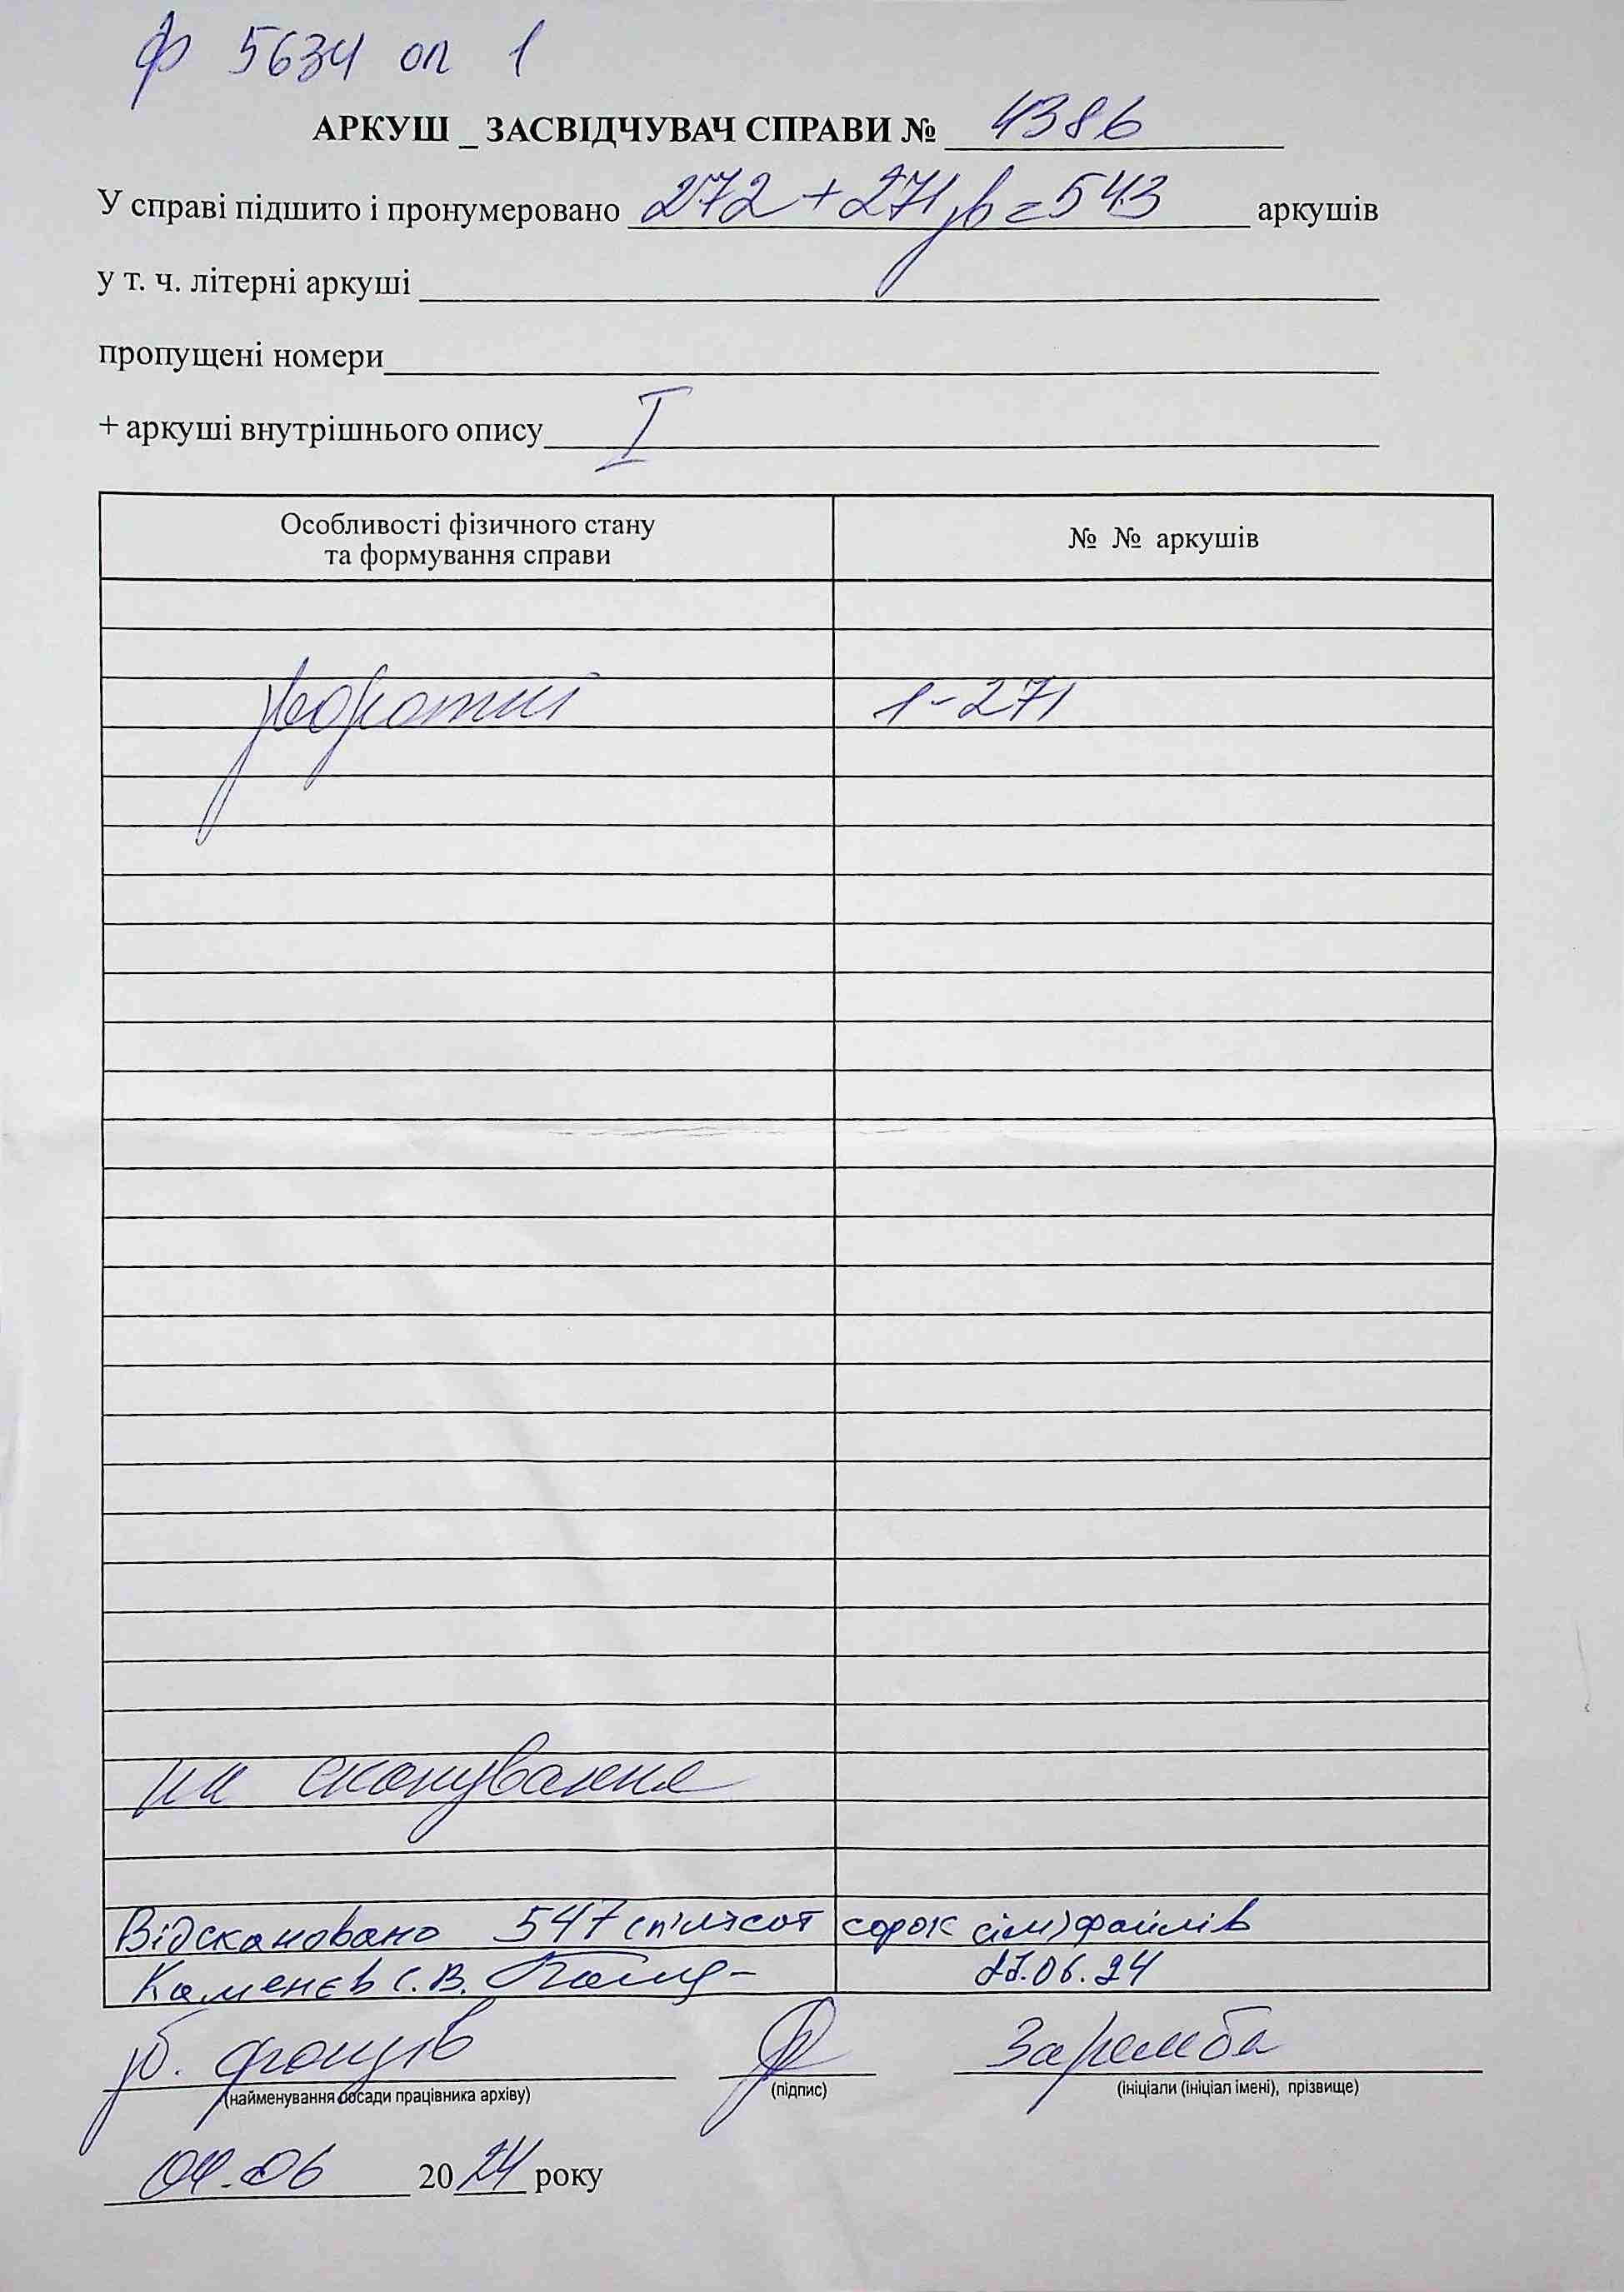 ф 5634 оп 1
АРКУШ _ ЗАСВІДЧУВАЧ СПРАВИ № 4386
У справі підшито і пронумеровано 272 + 271 зв = 543 аркушів
у т. ч. літерні аркуші
пропущені номери
+ аркуші внутрішнього опису I
Особливості фізичного стану
та формування справи
№ № аркушів
зворотні 1-271
на сканування
Відскановано 547 (п'ятсот сорок сім) файлів
Каменєв С.В. .06.24
зб. фондів Заремба
(найменування посади працівника архіву) (підпис) (ініціали (ініціал імені), прізвище)
04.06 2024 року